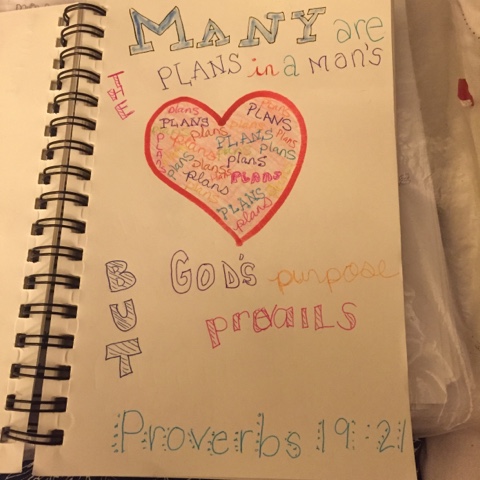 MANY are
THE
PLANS in a Man's
plans
PLANS PLANS
plans plans
PLANS PLANS
plans plans plans
plans PLANS
plans
PLANS
plans
BUT
GOD'S purpose
prevails
Proverbs 19:21